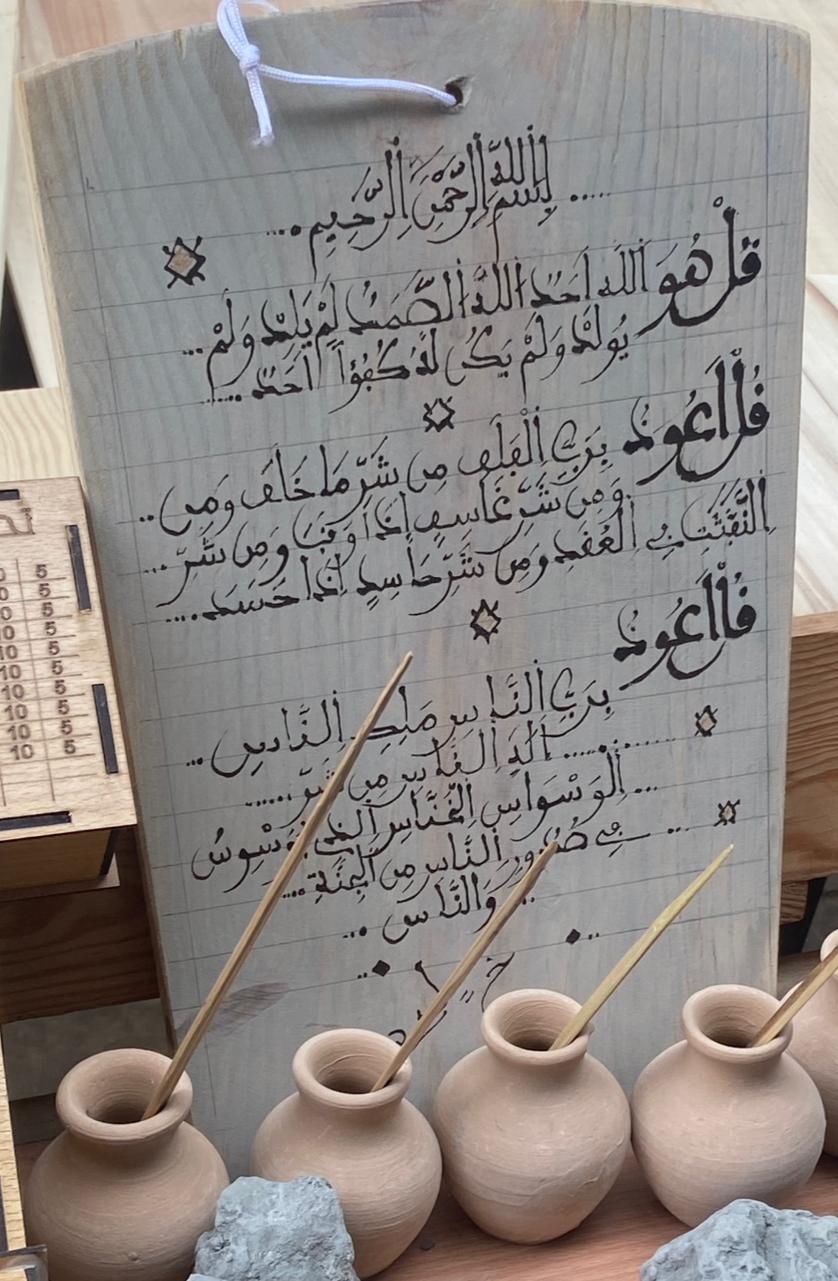 بِسْمِ اللَّهِ الرَّحْمَٰنِ الرَّحِيمِ
قُلْ هُوَ اللَّهُ أَحَدٌ اللَّهُ الصَّمَدُ لَمْ يَلِدْ وَلَمْ
يُولَدْ وَلَمْ يَكُن لَّهُ كُفُؤًا أَحَدٌ
قُلْ أَعُوذُ بِرَبِّ الْفَلَقِ مِن شَرِّ مَا خَلَقَ وَمِن
وَمِن شَرِّ غَاسِقٍ إِذَا وَقَبَ وَمِن شَرِّ
النَّفَّٰثَٰتِ فِي الْعُقَدِ وَمِن شَرِّ حَاسِدٍ إِذَا حَسَدَ
قُلْ أَعُوذُ
بِرَبِّ النَّاسِ مَلِكِ النَّاسِ
إِلَٰهِ النَّاسِ مِن شَرِّ
الْوَسْوَاسِ الْخَنَّاسِ الَّذِي يُوَسْوِسُ
فِي صُدُورِ النَّاسِ مِنَ الْجِنَّةِ
وَالنَّاسِ
5
5
5
10 5
10 5
10 5
10 5
10 5
10 5
10 5